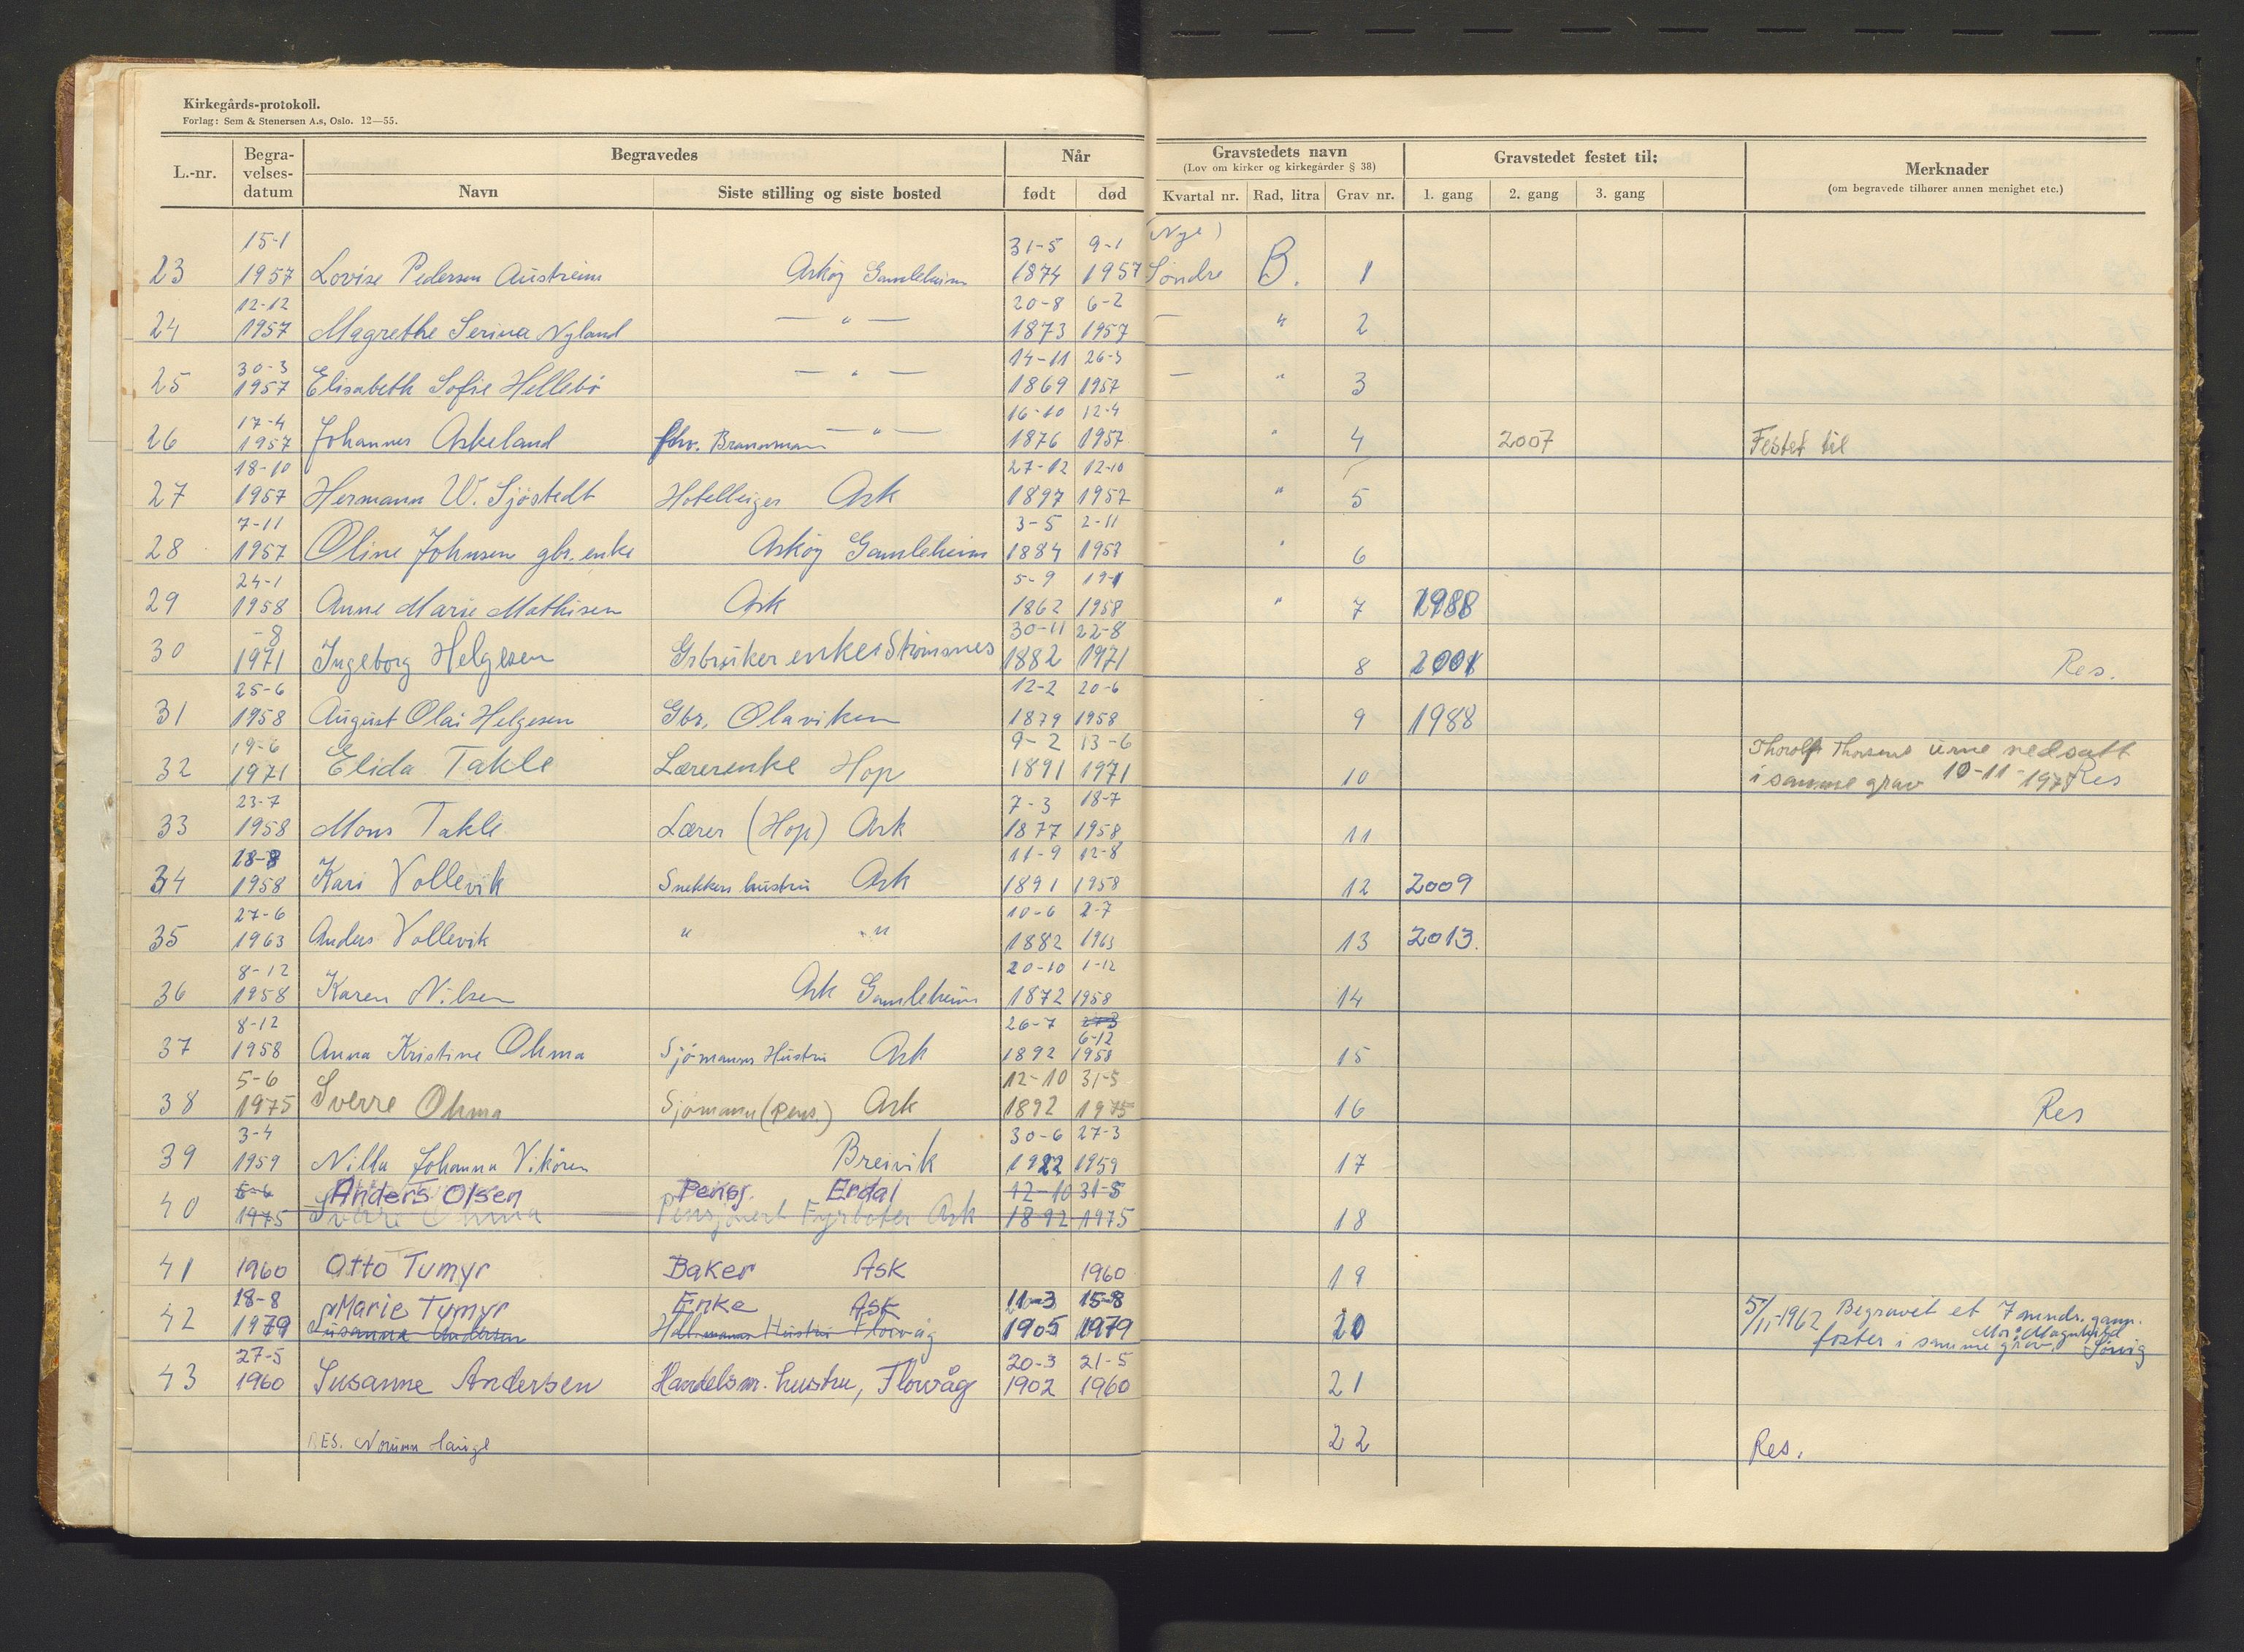 Kirkegårds-protokoll.
Forlag: Sem & Stenersen A.s, Oslo. 12—55.
L.-nr. Begra-velses-datum Begravedes Når Gravstedets navn Gravstedet festet til: Merknader
(Lov om kirker og kirkegårder § 38) (om begravede tilhører annen menighet etc.)
Navn Siste stilling og siste bosted født død Kvartal nr. Rad, litra Grav nr. 1. gang 2. gang 3. gang
15-1 31-5 9-1 (Nye)
23 1957 Lovise Pedersen Austreim Askøy Gamleheim 1874 1957 Søndre B. 1
12-12 20-8 6-2
24 1957 Magrethe Serina Nyland — " — 1873 1957 — " 2
30-3 14-11 26-3
25 1957 Elisabeth Sofie Hellebø — " — 1869 1957 — " 3
17-4 16-10 12-4
26 1957 Johannes Askeland fhv. — " — 1876 1957 " 4 2007 Festet til
18-10 27-12 12-10
27 1957 Hermann W. Sjøstedt Hotelleier Ask 1897 1957 " 5
7-11 3-5 2-11
28 1957 Oline Johnsen gbr. enke Askøy Gamleheim 1884 1957 " 6
24-1 5-9 19-1
29 1958 Anne Marie Mathisen Ask 1862 1958 " 7 1988
-8 30-11 22-8
30 1971 Ingeborg Helgesen Grbruker enke Strømsnes 1882 1971 8 2001 Res.
25-6 12-2 20-6
31 1958 August Olai Helgesen Gbr. Olaviken 1879 1958 9 1988
19-6 9-2 13-6 Thorolf urne nedsatt
32 1971 Elida Takle Lærerenke Hop 1891 1971 10 i samme grav 10-11-1978 Res
23-7 7-3 18-7
33 1958 Mons Takle Lærer (Hop) Ask 1877 1958 11
18-8 11-9 12-8
34 1958 Kari Vollevik Snekkers hustru Ask 1891 1958 12 2009
27-6 10-6 2-7
35 1963 Anders Vollevik " " 1882 1963 13 2013.
8-12 20-10 1-12
36 1958 Karen Nilsen Ask Gamleheim 1872 1958 14
8-12 26-7 6-12
37 1958 Anna Kristine Ohma Sjømanns Hustru Ask 1892 1958 15
5-6 12-10 31-5
38 1975 Sverre Ohma Sjømann (pens.) Ask 1892 1975 16 Res
3-4 30-6 27-3
39 1959 Nilla Johanna Vikøren Breivik 1922 1959 17
5-6 Anders Olsen Pensj. Erdal 12-10 31-5
40 1975 Sverre Ohma Pensjonert Fyrbøter Ask 1892 1975 18
41 1960 Otto Tumyr Baker Ask 1960 19
18-8 Marie Tumyr Enke Ask 11-3 15-8 5/11-1962 Begravet et 7 mndr. gam.
42 1979 Susanna Andersen Hustru Florvåg 1905 1979 20 foster i samme grav. Mor: Magnhild Sørvig
27-5 20-3 21-5
43 1960 Susanne Andersen Handelsm. hustru, Florvåg 1902 1960 21
RES. Norunn Hauge 22 Res.